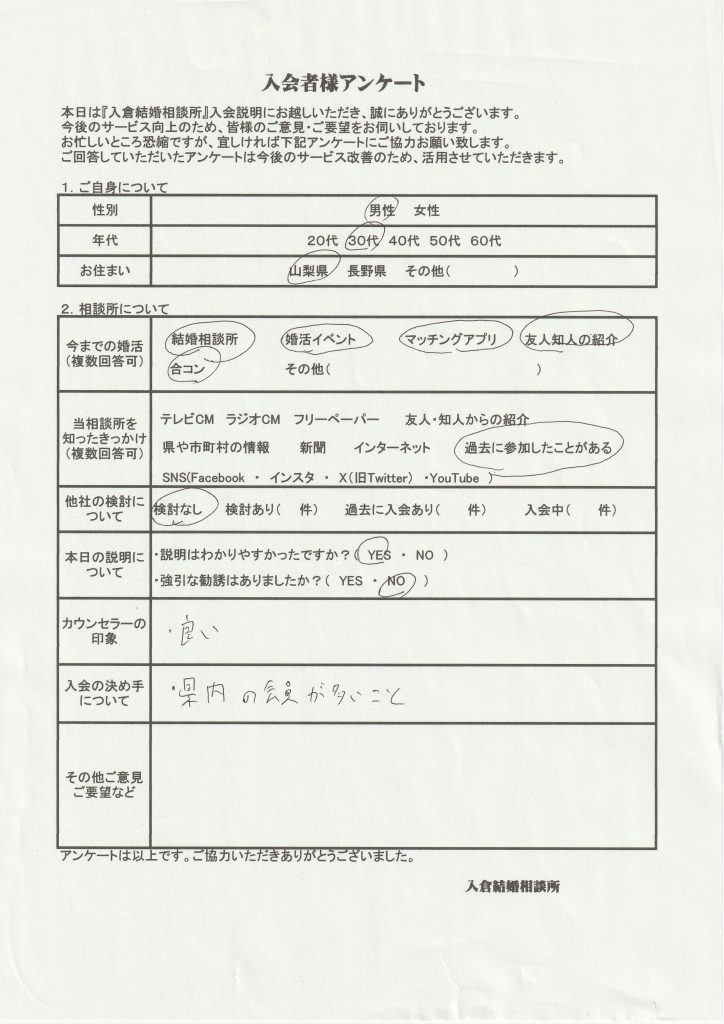 入会者様アンケート
本日は『入倉結婚相談所』入会説明にお越しいただき、誠にありがとうございます。
今後のサービス向上のため、皆様のご意見・ご要望をお伺いしております。
お忙しいところ恐縮ですが、宜しければ下記アンケートにご協力お願い致します。
ご回答していただいたアンケートは今後のサービス改善のため、活用させていただきます。
1．ご自身について
性別 男性 女性
年代 20代 30代 40代 50代 60代
お住まい 山梨県 長野県 その他( )
2．相談所について
今までの婚活
(複数回答可)
結婚相談所 婚活イベント マッチングアプリ 友人知人の紹介
合コン その他( )
当相談所を
知ったきっかけ
(複数回答可)
テレビCM ラジオCM フリーペーパー 友人・知人からの紹介
県や市町村の情報 新聞 インターネット 過去に参加したことがある
SNS(Facebook ・ インスタ ・ X(旧Twitter) ・YouTube )
他社の検討に
ついて
検討なし 検討あり( 件) 過去に入会あり( 件) 入会中( 件)
本日の説明に
ついて
・説明はわかりやすかったですか？( YES ・ NO )
・強引な勧誘はありましたか？( YES ・ NO )
カウンセラーの
印象
・良い
入会の決め手
について
・県内の会員が多いこと
その他ご意見
ご要望など
アンケートは以上です。ご協力いただきありがとうございました。
入倉結婚相談所